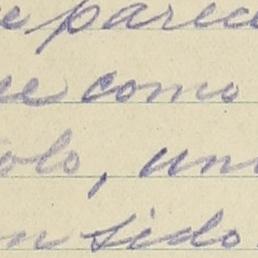 e parece
ue como
olo, un
n sido